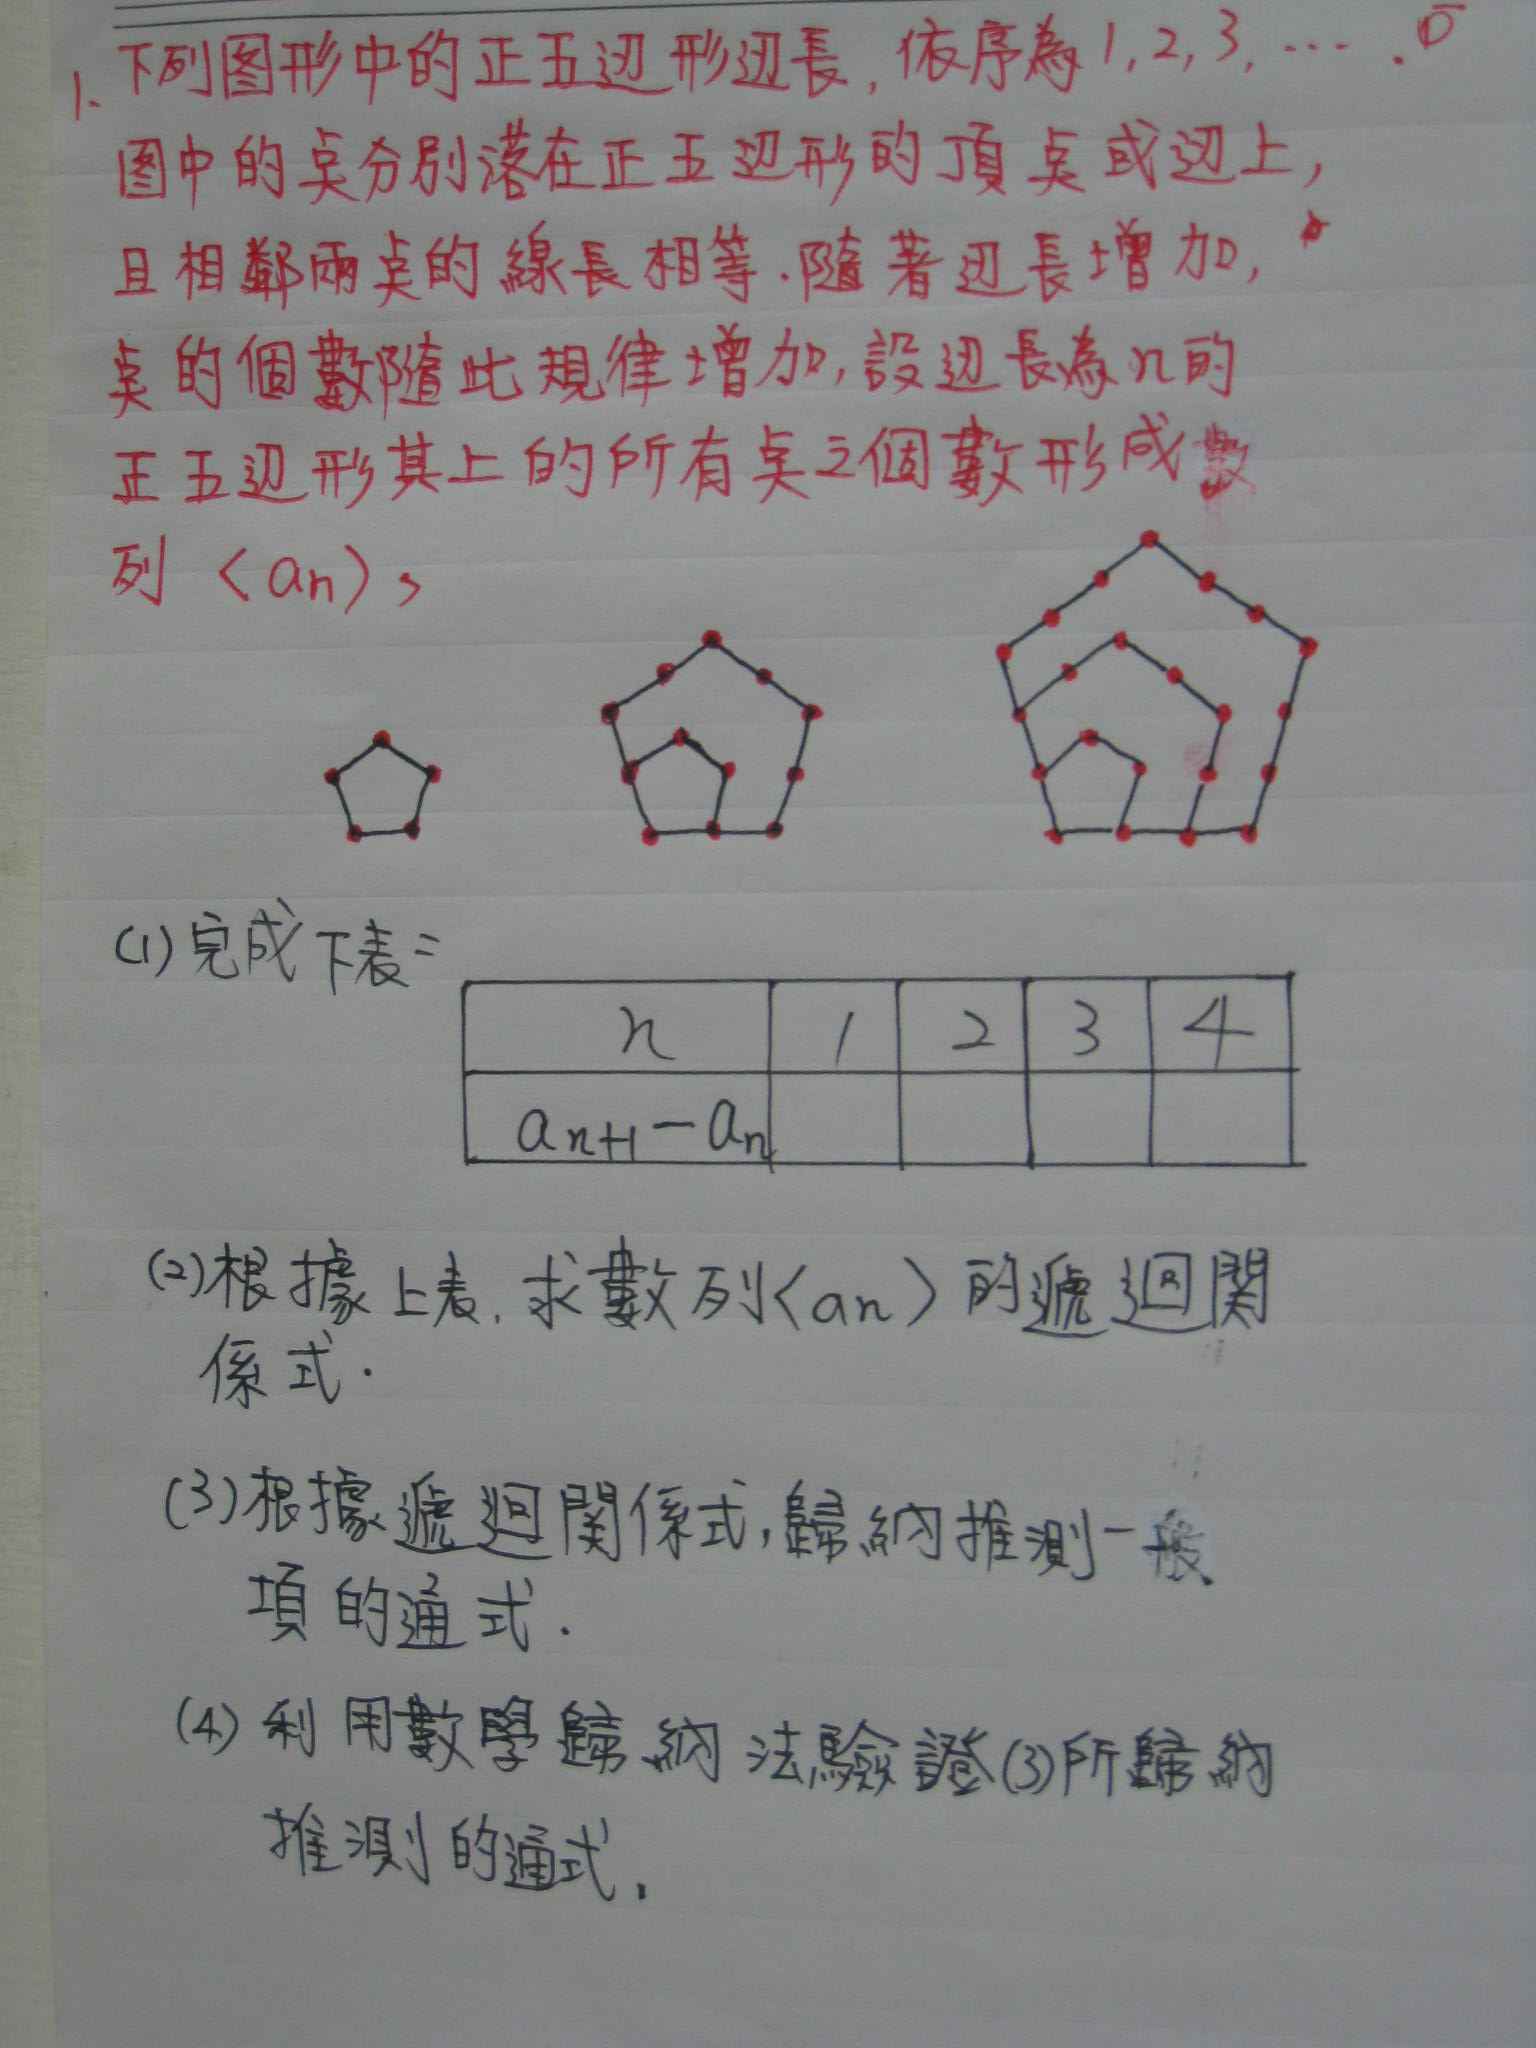 1. 下列图形中的正五边形边長,依序為1,2,3,….
图中的点分別落在正五边形的頂点或边上,
且相鄰兩点的線長相等.隨著边長增加,
点的個數隨此規律增加,設边長為n的
正五边形其上的所有点之個數形成數
列〈an〉,
(1)完成下表:
n 1 2 3 4
an+1-an
(2)根據上表,求數列〈an〉的遞迴関
係式.
(3)根據遞迴関係式,歸納推測一般
項的通式.
(4)利用數學歸納法驗證(3)所歸納
推測的通式.